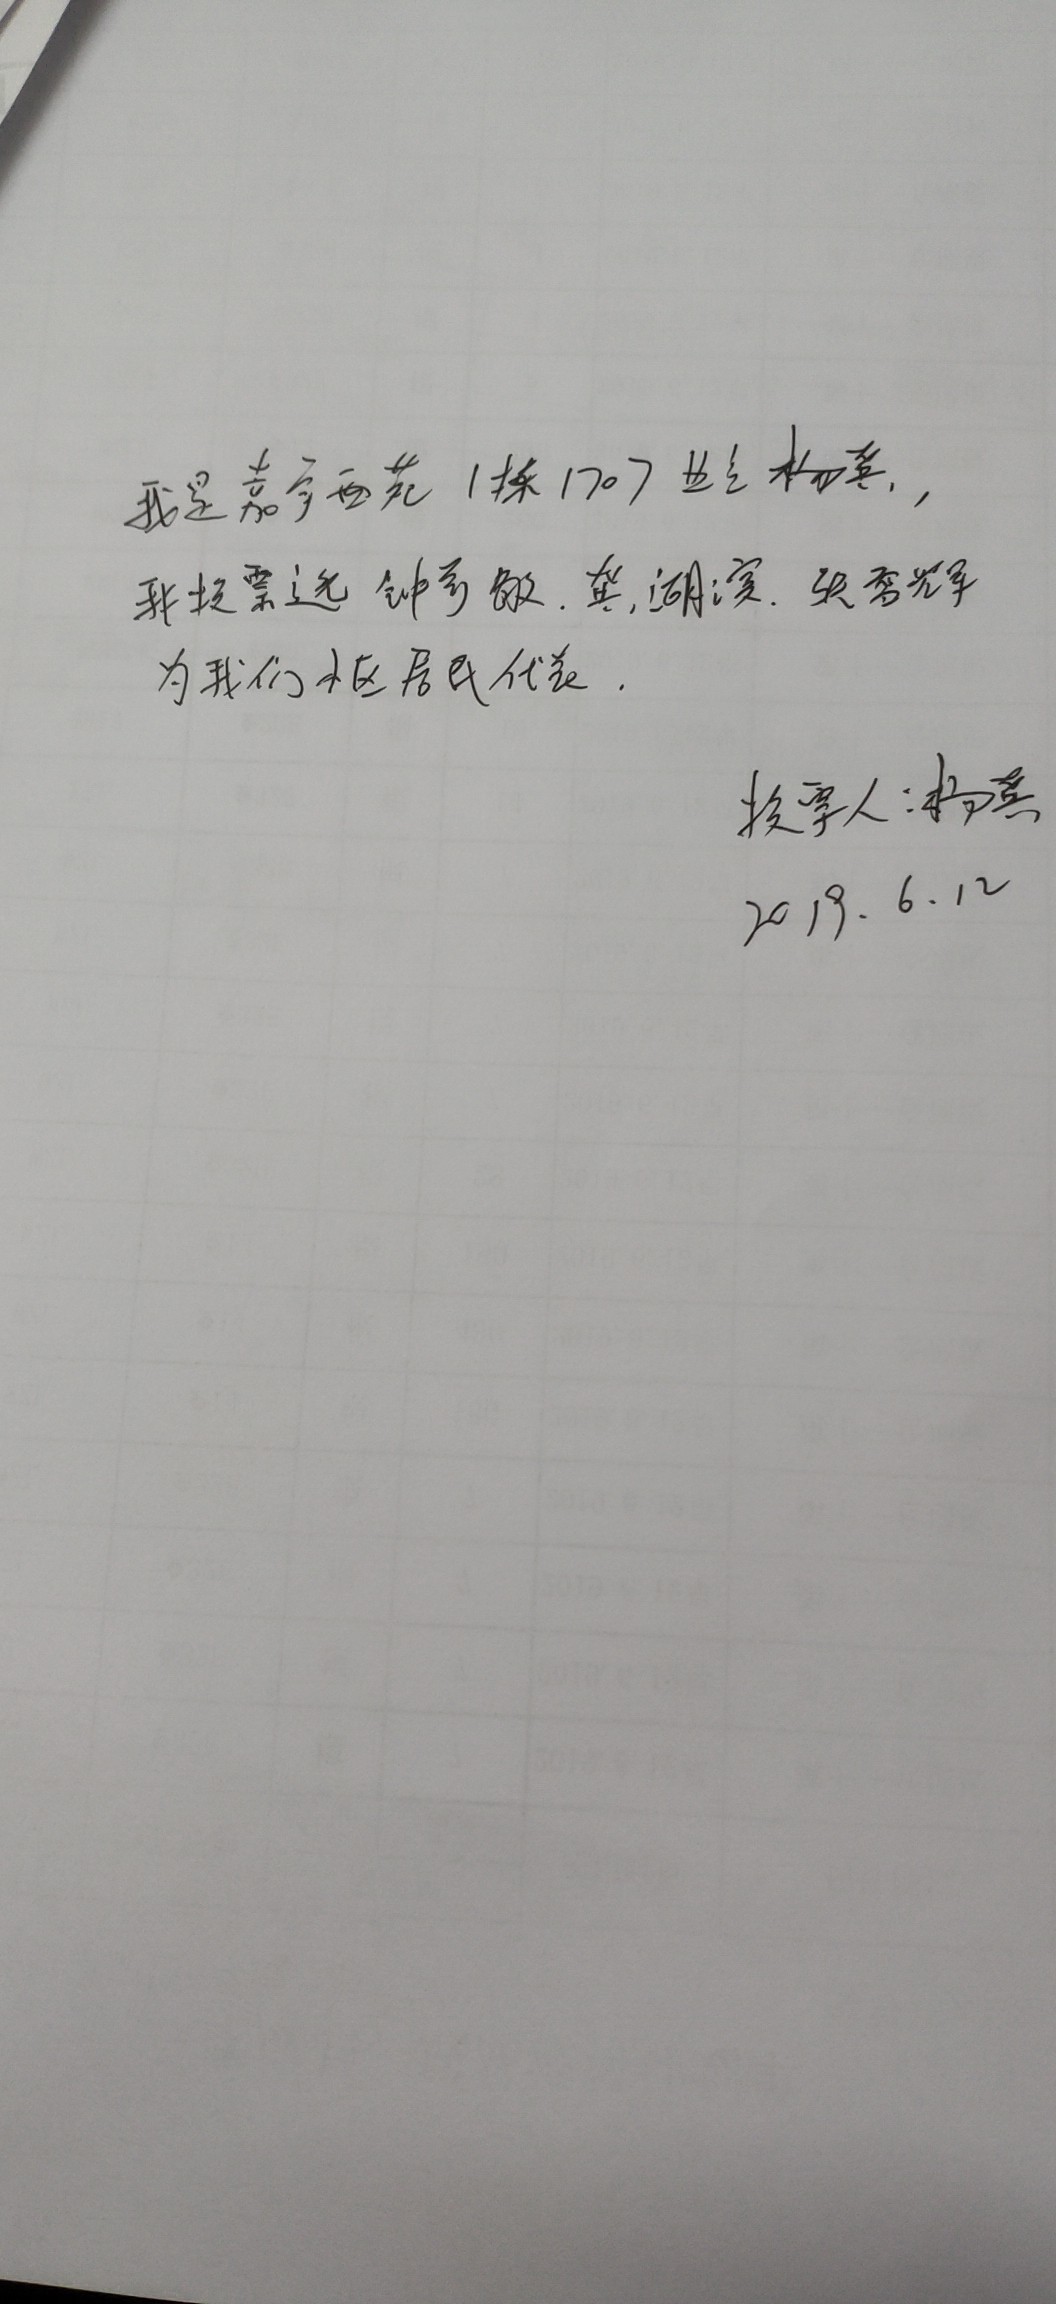 我是嘉宇西苑1栋1707业主杨燕,
我投票选 钟雪敏.龚湖滨.张香辉
为我们小区居民代表.
投票人:杨燕
2019.6.12